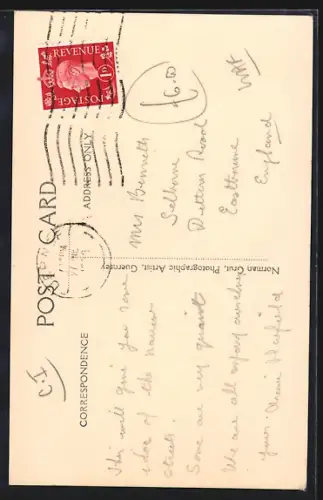 POST CARD
CORRESPONDENCE
ADDRESS ONLY
POSTAGE
REVENUE
1D
C.I
£6.00
This will give you some
idea of the narrow
streets.
Some are very quaint
We are all enjoying ourselves
yours
Norman Grut, Photographic Artist, Guernsey
Mrs Bennett
Selborne
Road
Eastbourne
England